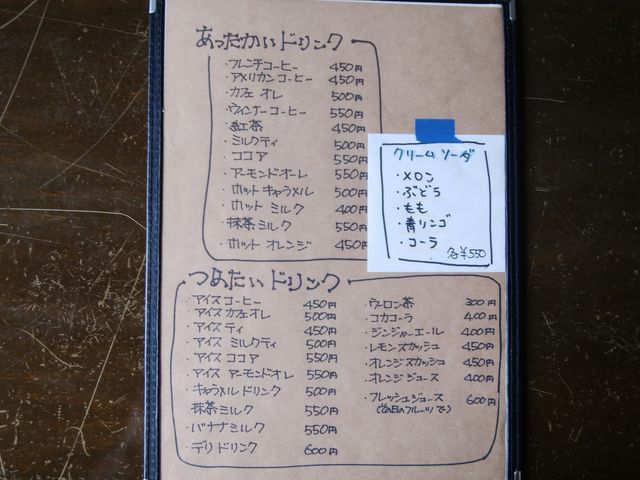 あったかいドリンク
・フレンチコーヒー 450円
・アメリカンコーヒー 450円
・カフェ オレ 500円
・ウィンナーコーヒー 550円
・紅茶 450円
・ミルクティ 500円
・ココア 550円
・アーモンドオーレ 550円
・ホット キャラメル 500円
・ホット ミルク 400円
・抹茶 ミルク 550円
・ホット オレンジ 450円
クリームソーダ
・メロン
・ぶどう
・もも
・青リンゴ
・コーラ
各¥550
つめたいドリンク
・アイスコーヒー 450円
・アイスカフェオレ 500円
・アイスティ 450円
・アイス ミルクティ 500円
・アイス ココア 550円
・アイス アーモンドオレ 550円
・キャラメルドリンク 500円
・抹茶ミルク 550円
・バナナミルク 550円
・デリドリンク 600円
・ウーロン茶 300円
・コカコーラ 400円
・ジンジャーエール 400円
・レモンスカッシュ 450円
・オレンジスカッシュ 450円
・オレンジジュース 400円
・フレッシュジュース 600円
(当日のフルーツで)